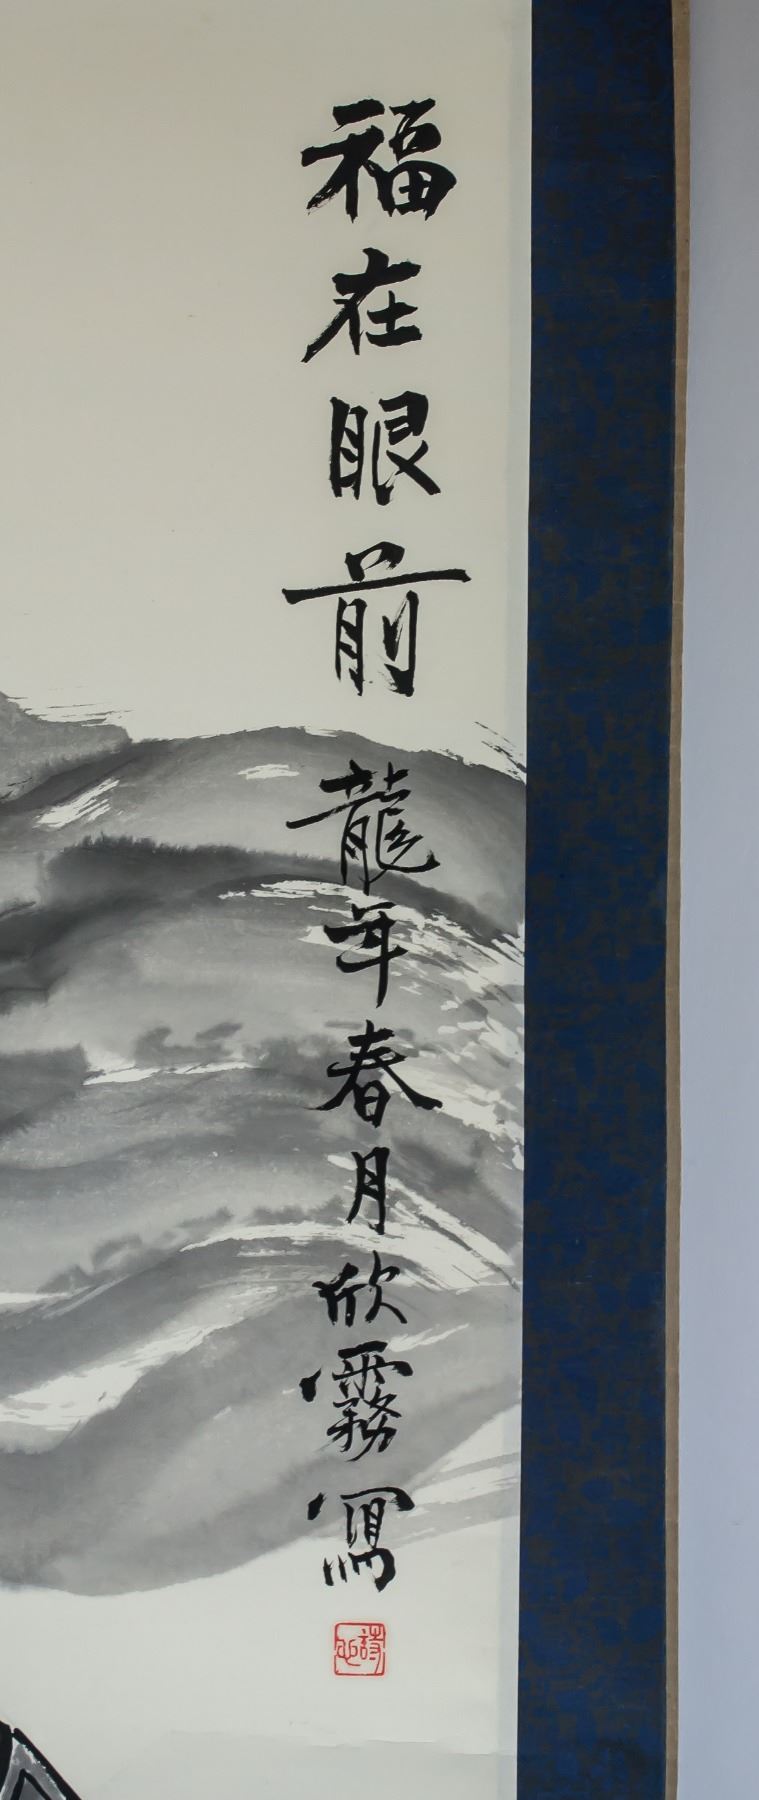 福在眼前 龍年春月欣霧寫